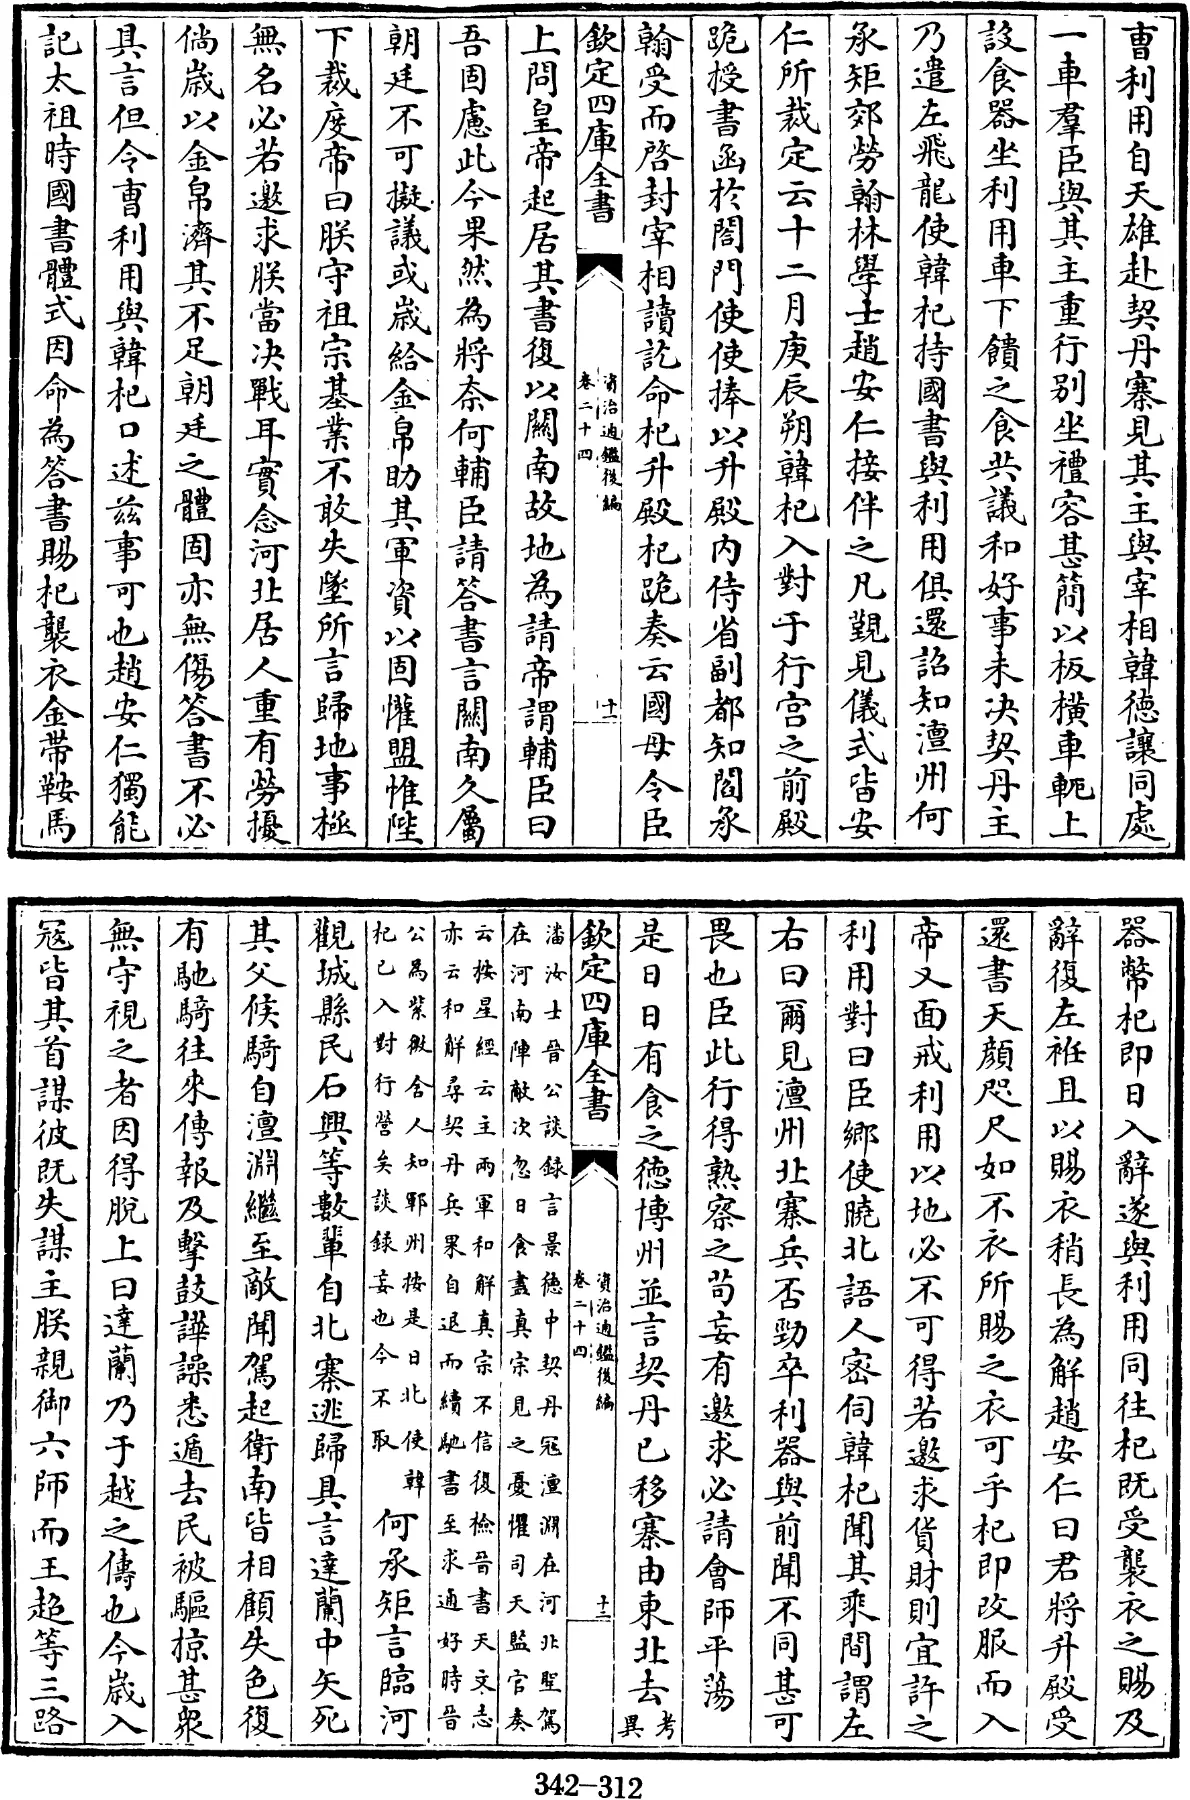 曹利用自天雄赴契丹寨見其主與宰相韓徳讓同處
一車羣臣與其主重行别坐禮容甚簡以板橫車軛上
設食器坐利用車下饋之食共議和好事未决契丹主
乃遣左飛龍使韓杞持國書與利用俱還詔知澶州何
承矩郊勞翰林學士趙安仁接伴之凡覲見儀式皆安
仁所裁定云十二月庚辰朔韓杞入對于行宫之前殿
跪授書函於閤門使使捧以升殿内侍省副都知閻承
翰受而啓封宰相讀訖命杞升殿杞跪奏云國母令臣
欽定四庫全書
資治通鑑後編
卷二十四
十一
上問皇帝起居其書復以關南故地為請帝謂輔臣曰
吾固慮此今果然為將奈何輔臣請答書言關南久屬
朝廷不可擬議或嵗給金帛助其軍資以固懽盟惟陛
下裁度帝曰朕守祖宗基業不敢失墜所言歸地事極
無名必若邀求朕當决戰耳實念河北居人重有勞擾
倘嵗以金帛濟其不足朝廷之體固亦無傷答書不必
具言但令曹利用與韓杞口述兹事可也趙安仁獨能
記太祖時國書體式因命為答書賜杞襲衣金帶鞍馬
器幣杞即日入辭遂與利用同往杞既受襲衣之賜及
辭復左袵且以賜衣稍長為解趙安仁曰君將升殿受
還書天顔咫尺如不衣所賜之衣可乎杞即改服而入
帝又面戒利用以地必不可得若邀求貨財則宜許之
利用對曰臣鄉使曉北語人密伺韓杞聞其乘間謂左
右曰爾見澶州北寨兵否勁卒利器與前聞不同甚可
畏也臣此行得熟察之茍妄有邀求必請會師平蕩
是日日有食之徳博州並言契丹已移寨由東北去考
異
欽定四庫全書
資治通鑑後編
卷二十四
十二
潘汝士晉公談録言景徳中契丹冦澶淵在河北聖駕
在河南陣敵次忽日食盡真宗見之憂懼司天監官奏
云按星經云主兩軍和解真宗不信復檢晉書天文志
亦云和解尋契丹兵果自退而續馳書至求通好時晉
公為紫微舍人知鄆州按是日北使韓
杞已入對行營矣談録妄也今不取
何承矩言臨河
觀城縣民石興等數輩自北寨逃歸具言達蘭中矢死
其父候騎自澶淵繼至敵聞駕起衛南皆相顧失色復
有馳騎往來傳報及擊鼓譁譟悉遁去民被驅掠甚衆
無守視之者因得脫上曰達蘭乃于越之儔也今嵗入
冦皆其首謀彼既失謀主朕親御六師而王超等三路
342-312